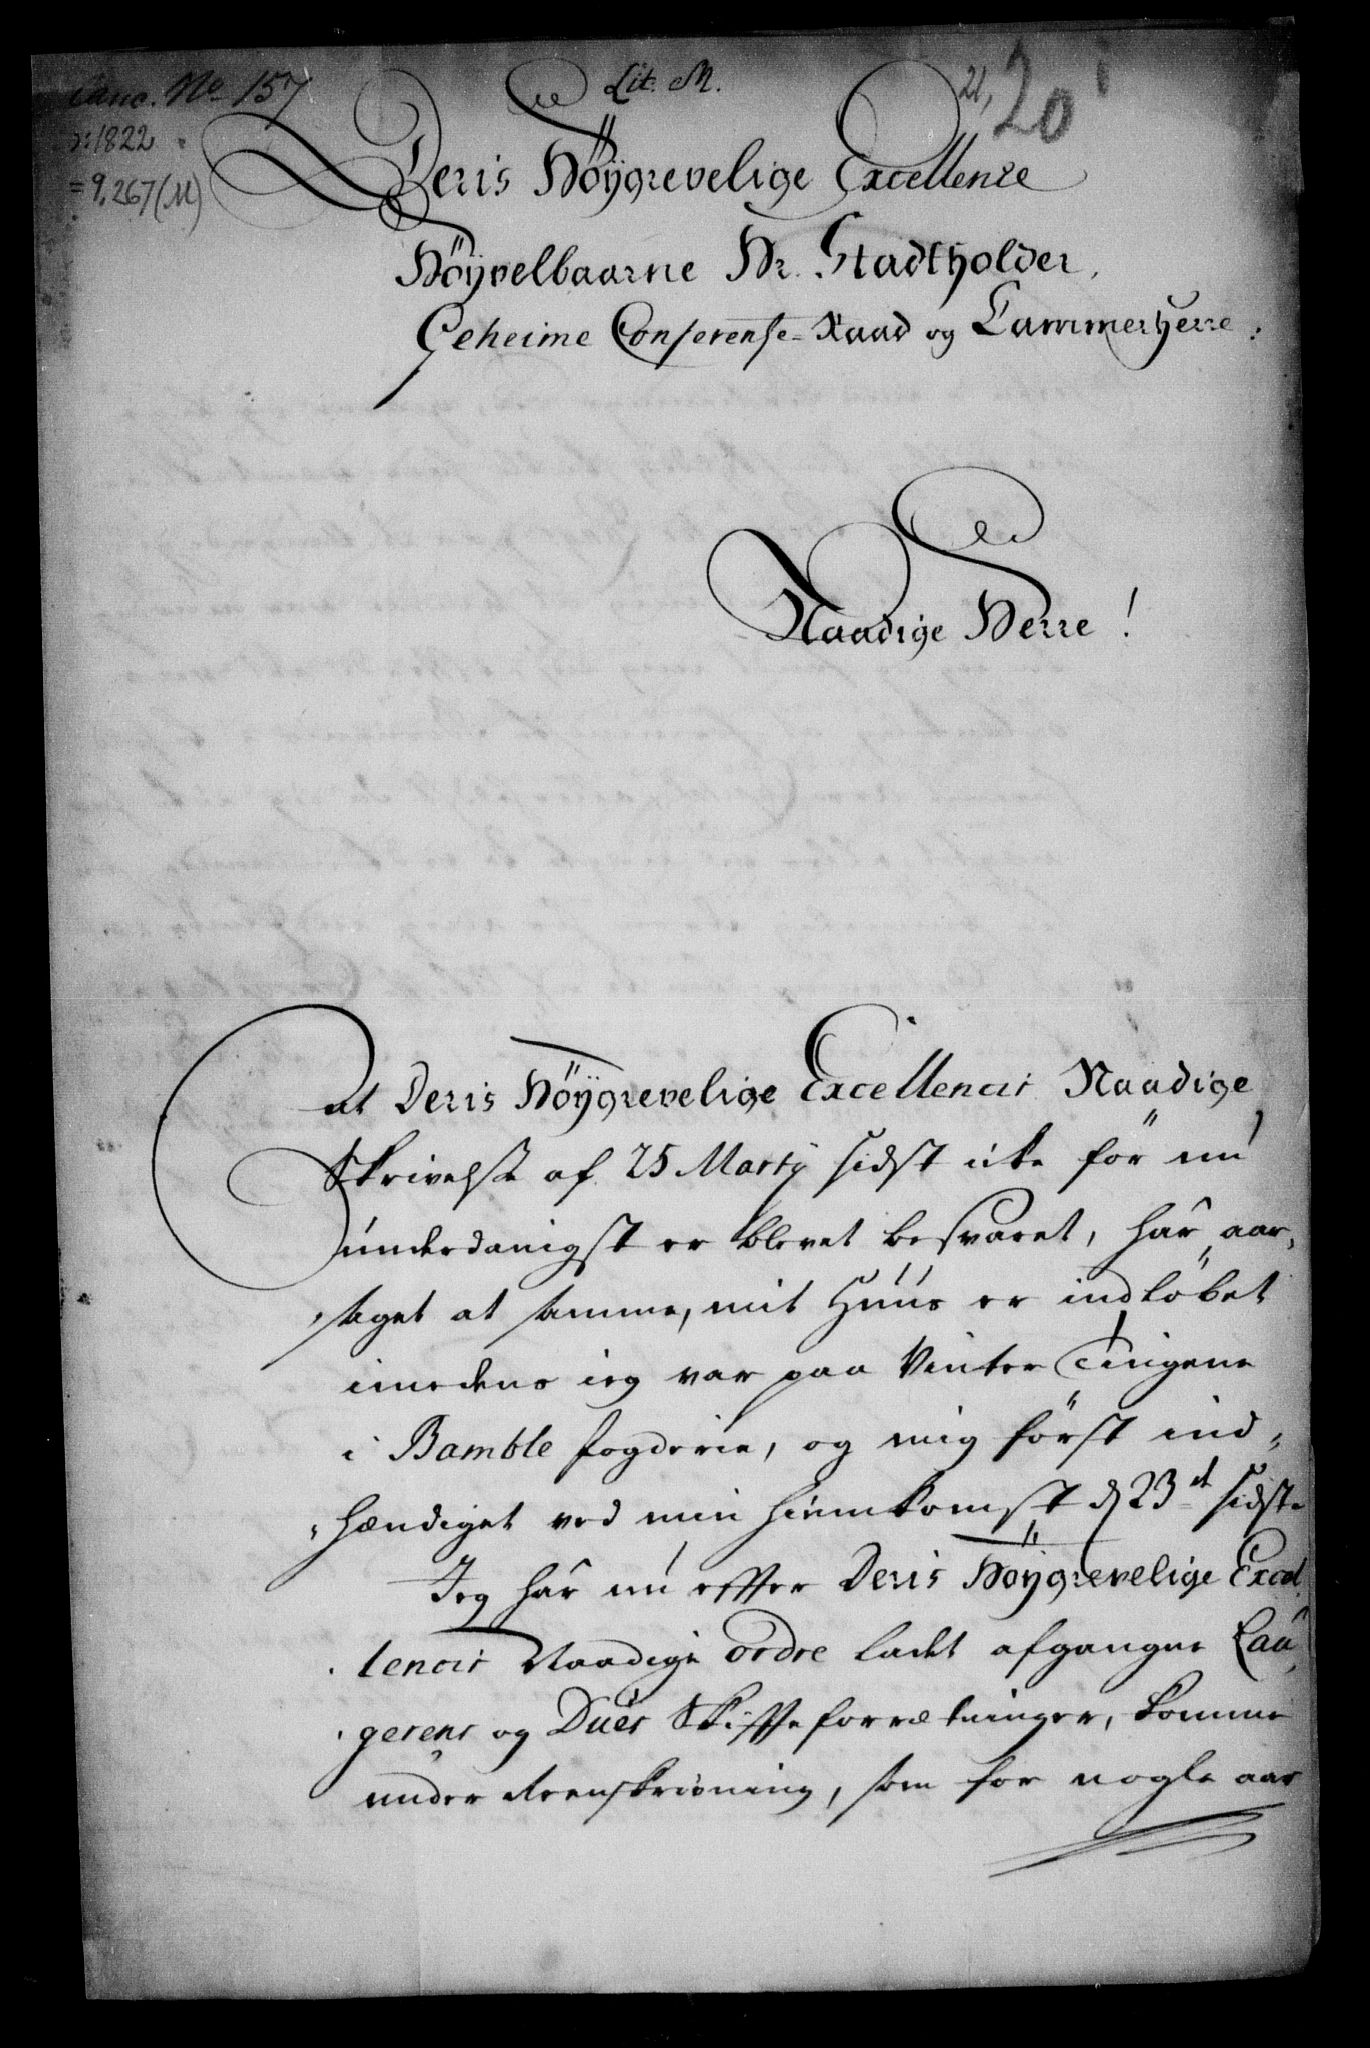 Canc. No 157
Lit. M.
21, 20
ɔ: 1822
= 9.267 (M)
Deris Höÿgrevelige Excellence
Höÿvelbaarne Hr. Stadtholder,
Geheime Conferense-Raad og Cammerherre.
Naadige Herre!
At Deris Höÿgrevelige Excellencis Naadige
Skrivelse af 25 Martÿ sidst icke för nu
underdanigst er blevet besvaret, har aar-
saget at samme, mit Huus er indlöbet
imedens ieg var paa Vinter Tingene
i Bamble fogderie, og mig först ind-
hændiget ved min hiemkomst d 23de sidste
Jeg har nu effter Deris Höÿgrevelige Excel
lencis Naadige ordre ladet afgangne Lau
gesens og Dues Skiffteforretninger, komme
under Reenskrivning, som for nogle aar